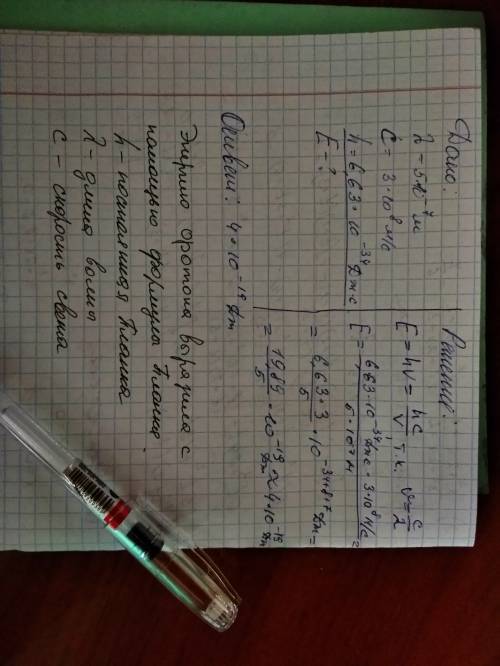 Дано:
λ = 5·10⁻⁷ м
C = 3·10⁸ м/с
h = 6,63·10⁻³⁴ Дж·с
E - ?
Решение:
E = hν = hc/ν, т.к. ν = c/λ
E = 6,63·10⁻³⁴ Дж·с · 3·10⁸ м/с / 5·10⁻⁷ м =
= 6,63·3/5 · 10⁻³⁴⁺⁸⁺⁷ Дж =
= 19,89/5 · 10⁻¹⁹ Дж ≈ 4·10⁻¹⁹ Дж
Ответ: 4·10⁻¹⁹ Дж
Энергию фотона выразила с
помощью формулы Планка.
h - постоянная Планка
λ - длина волны
c - скорость света